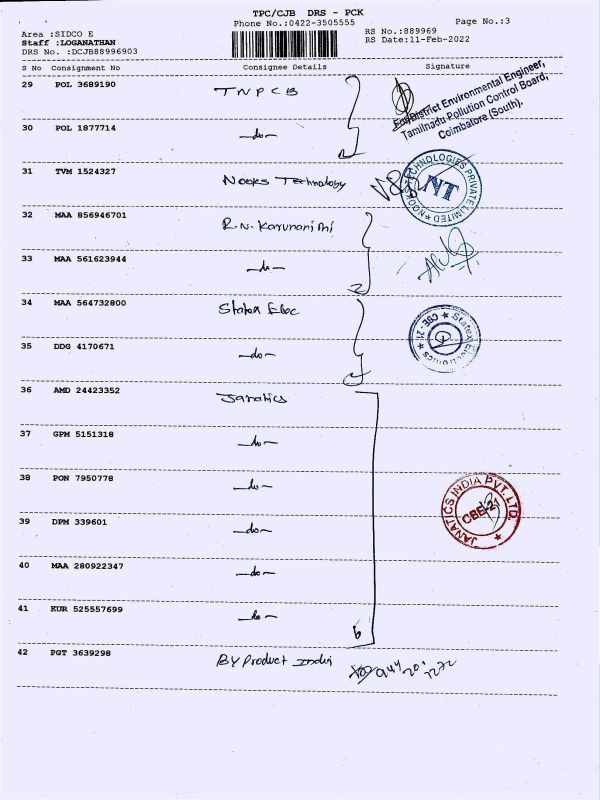 TPC/CJB DRS - PCK
Phone No.:0422-3505555
Page No.:3
Area :SIDCO E
Staff :LOGANATHAN
DRS No. :DCJB88996903
RS No.:889969
RS Date:11-Feb-2022
S No Consignment No Consignee Details Signature
29 POL 3689190 TNPCB
For District Environmental Engineer,
Tamilnadu Pollution Control Board,
Coimbatore (South).
30 POL 1877714 -do-
2
31 TVM 1524327 Nooks Technology
NOOKS TECHNOLOGIES PRIVATE LIMITED ★
NT
32 MAA 856946701 R.N. Karunanithi
33 MAA 561623944 -do-
2
34 MAA 564732800 Statex Elec
Statex Electronics ★ CBE - 21 ★
35 DDG 4170671 -do-
2
36 AMD 24423352 Janatics
37 GPM 5151318 -do-
38 PON 7950778 -do-
JANATICS INDIA PVT. LTD. ★
CBE-21
39 DPM 339601 -do-
40 MAA 280922347 -do-
41 KUR 525557699 -do-
6
42 PGT 3639298 By Product India